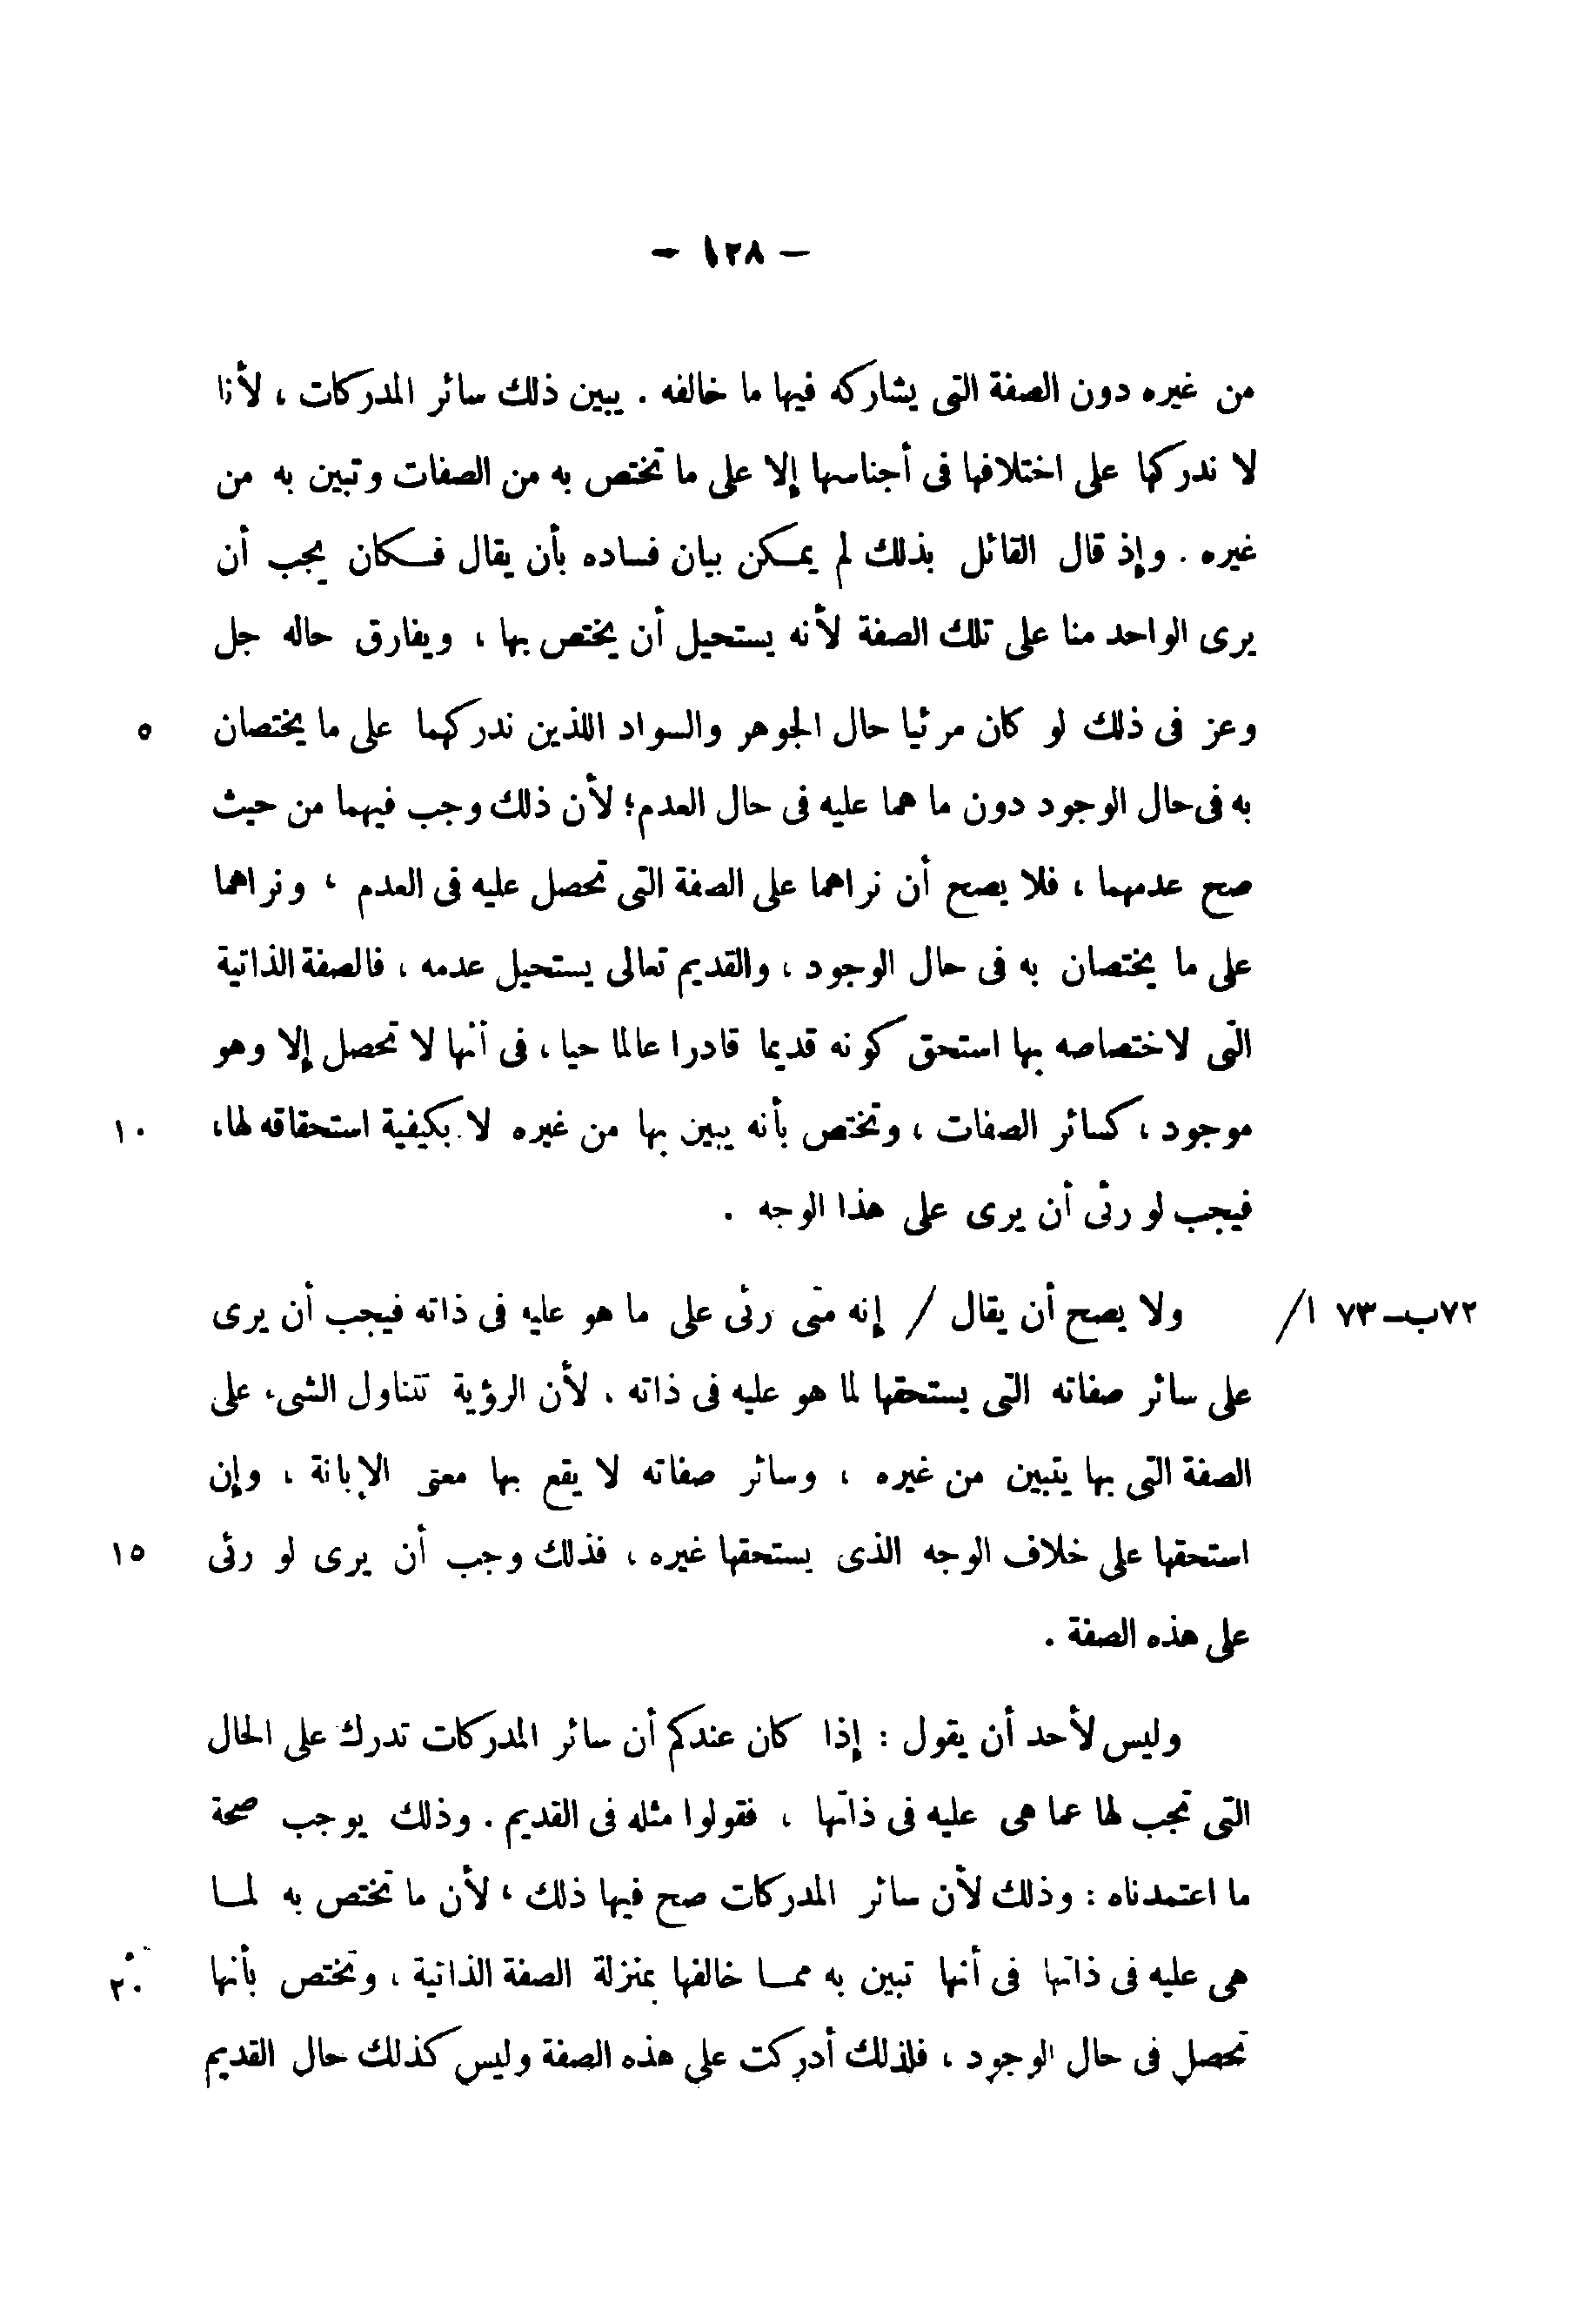 – ١٢٨ –
من غيره دون الصفة التى يشاركه فيها ما خالفه . يبين ذلك سائر المدركات ، لأنا
لا ندركها على اختلافها فى أجناسها إلا على ما تختص به من الصفات وتبين به من
غيره . وإذ قال القائل بذلك لم يمكن بيان فساده بأن يقال فكان يجب أن
يرى الواحد منا على تلك الصفة لأنه يستحيل أن يختص بها ، ويفارق حاله جل
وعز فى ذلك لو كان مرئيا حال الجوهر والسواد اللذين ندركهما على ما يختصان ٥
به فى حال الوجود دون ما هما عليه فى حال العدم؛ لأن ذلك وجب فيهما من حيث
صح عدمهما ، فلا يصح أن نراهما على الصفة التى تحصل عليه فى العدم ، ونراهما
على ما يختصان به فى حال الوجود ، والقديم تعالى يستحيل عدمه ، فالصفة الذاتية
التى لاختصاصه بها استحق كونه قديما قادرا عالما حيا ، فى أنها لا تحصل إلا وهو
موجود ، كسائر الصفات ، وتختص بأنه يبين بها من غيره لا بكيفية استحقاقه لها، ١٠
فيجب لو رئى أن يرى على هذا الوجه .
٧٢ب–٧٣ ا/ ولا يصح أن يقال / إنه متى رئى على ما هو عليه فى ذاته فيجب أن يرى
على سائر صفاته التى يستحقها لما هو عليه فى ذاته ، لأن الرؤية تتناول الشىء على
الصفة التى بها يتبين من غيره ، وسائر صفاته لا يقع بها معنى الإبانة ، وإن
استحقها على خلاف الوجه الذى يستحقها غيره ، فذلك وجب أن يرى لو رئى ١٥
على هذه الصفة .
وليس لأحد أن يقول : إذا كان عندكم أن سائر المدركات تدرك على الحال
التى تجب لها عما هى عليه فى ذاتها ، فقولوا مثله فى القديم . وذلك يوجب صحة
ما اعتمدناه : وذلك لأن سائر المدركات صح فيها ذلك ، لأن ما تختص به لما
هى عليه فى ذاتها فى أنها تبين به مما خالفها بمنزلة الصفة الذاتية ، وتختص بأنها ٢٠
تحصل فى حال الوجود ، فلذلك أدركت على هذه الصفة وليس كذلك حال القديم